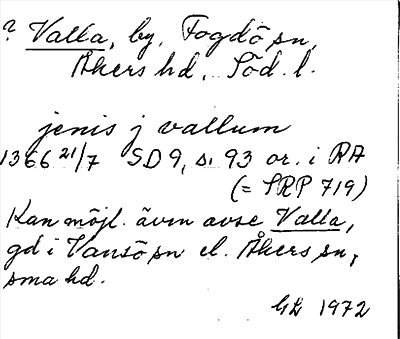 ? Valla, by, Fogdö sn,
Åkers hd, Söd. l.
jenis j vallum
1366 21/7 SD 9, s. 93 or. i RA
(= SRP 719)
Kan möjl. även avse Valla,
gd i Vansö sn el. Åkers sn,
sma hd.
GL 1972